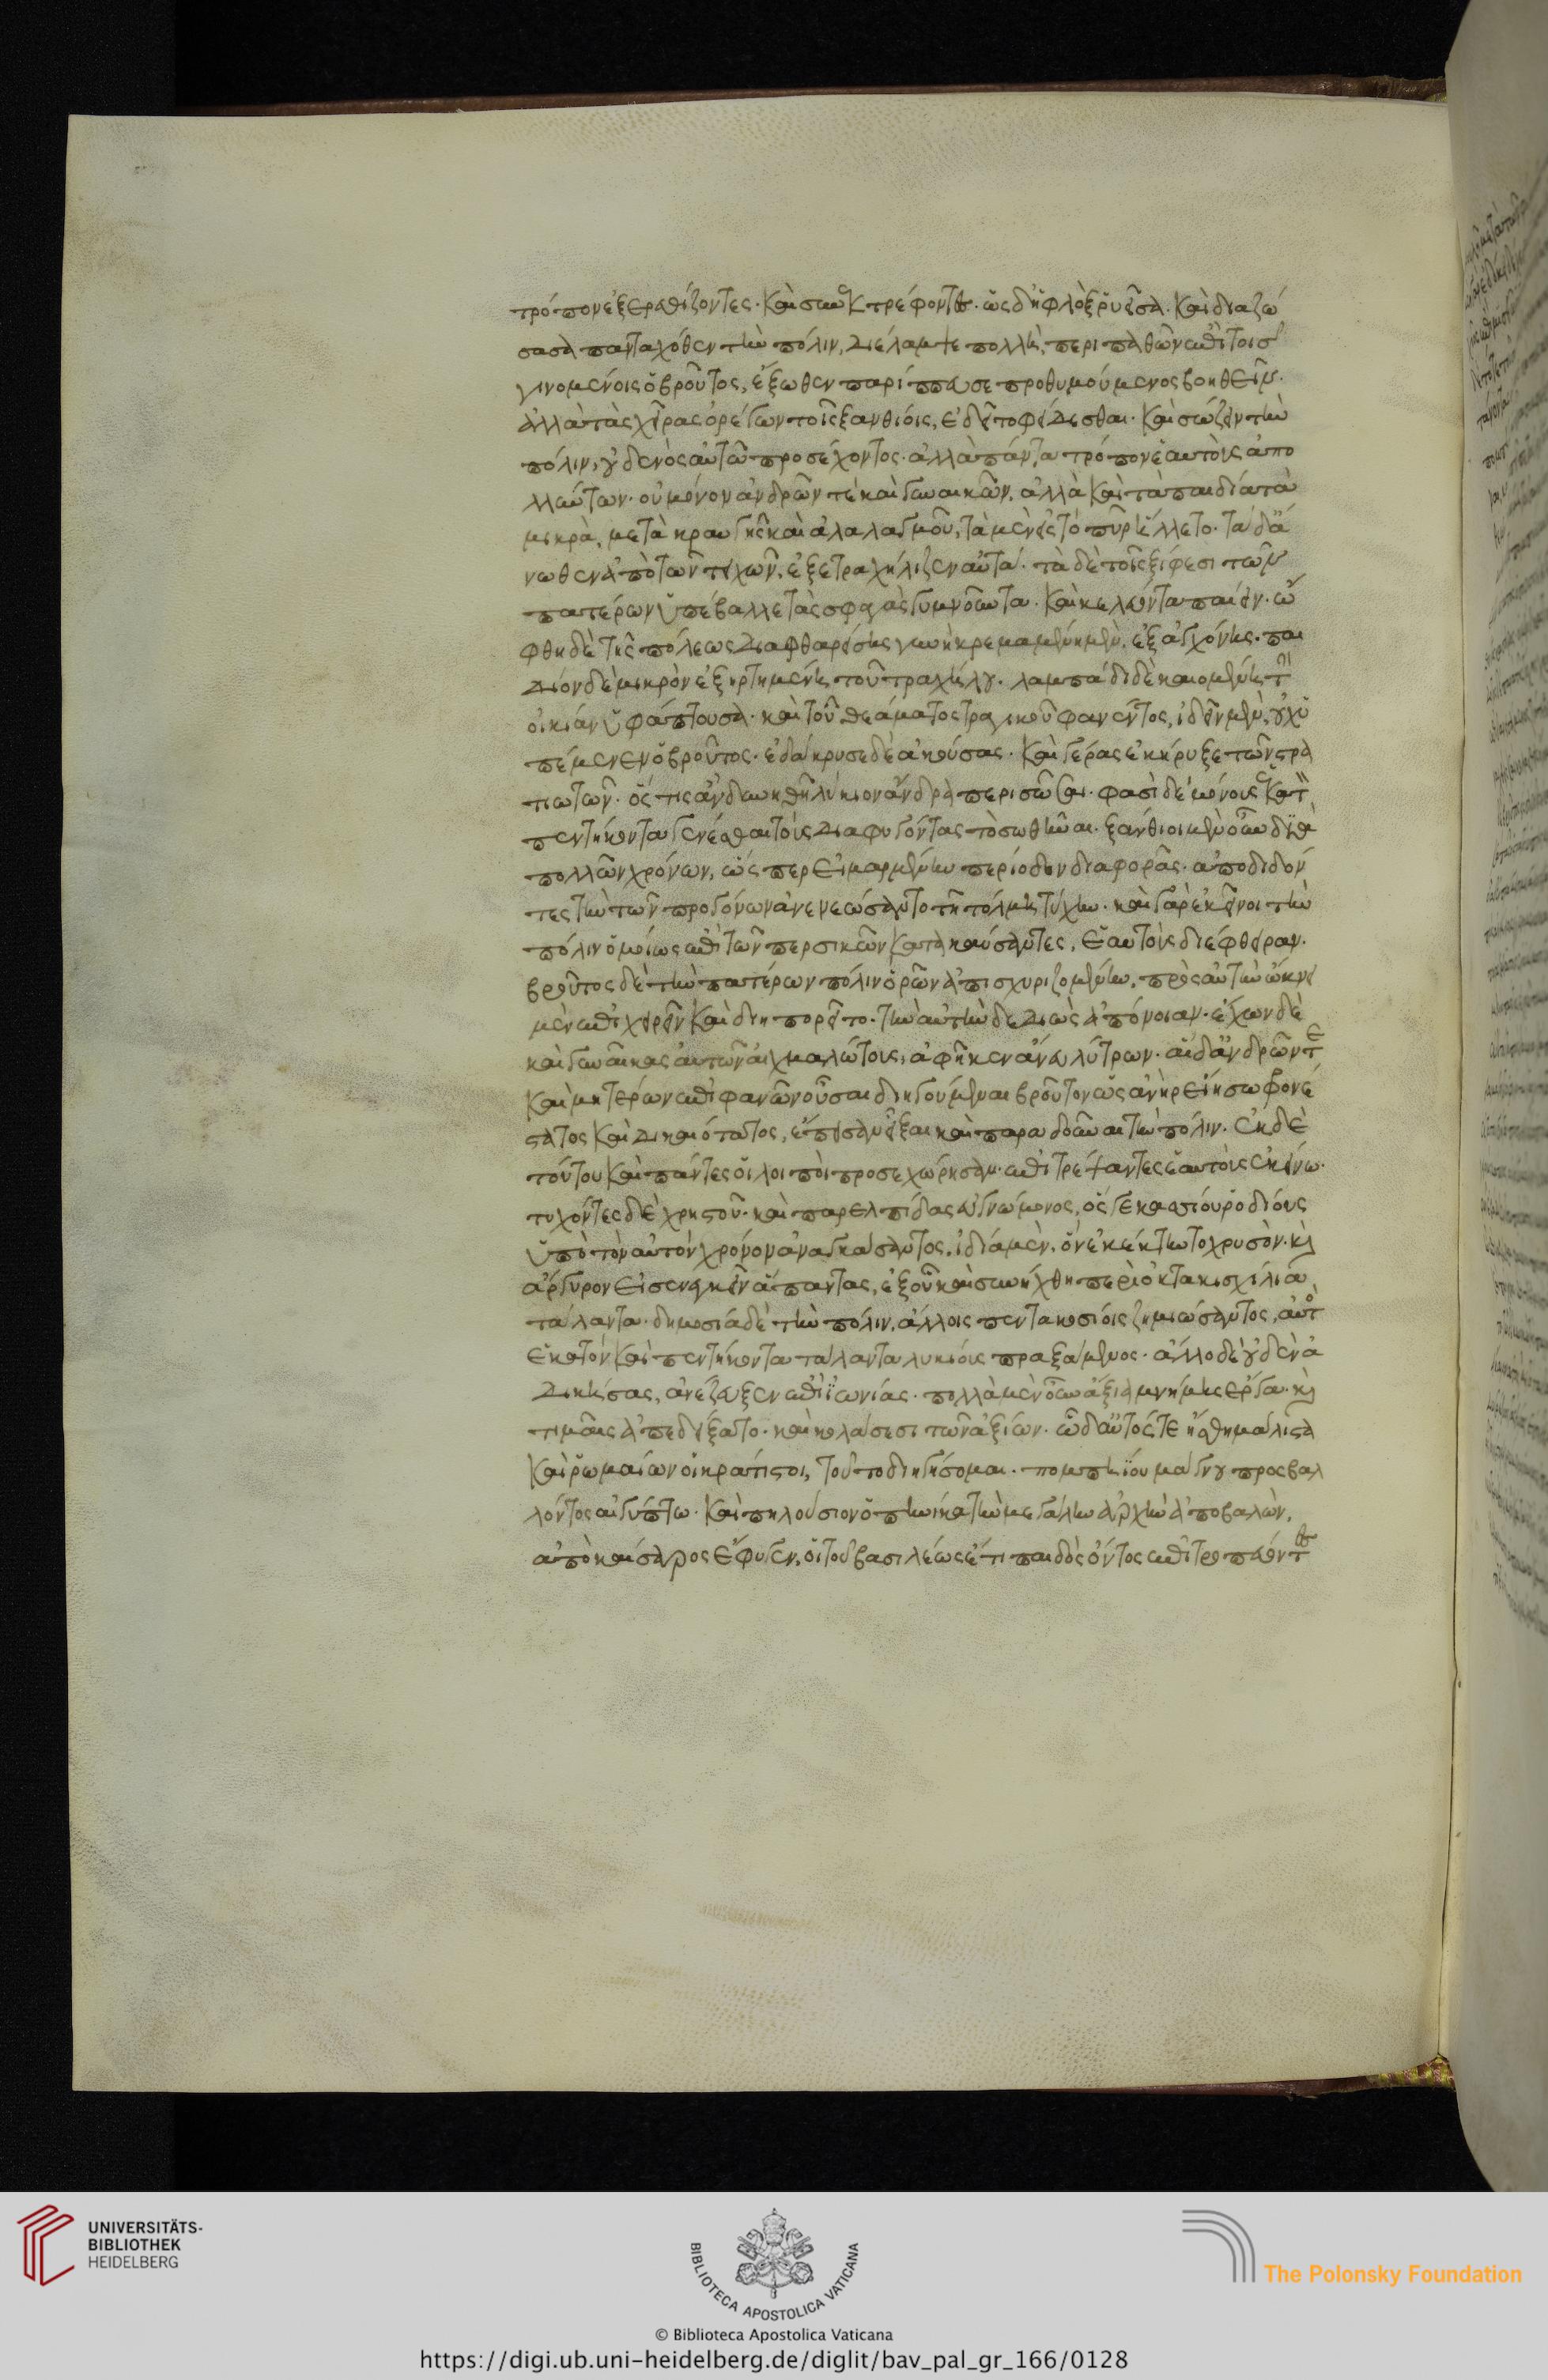 τρόπον ἐξερεθίζοντες. καὶ συνεκτρέφοντες. ὡς δ' ἡ φλὸξ ῥυεῖσα. καὶ διαζώ
σασα πανταχόθεν τὴν πόλιν, διέλαμψε πολλὴ, περιπαθῶν ἐπὶ τοῖς
γινομένοις ὁ βροῦτος, ἔξωθεν παρίππευσε προθυμούμενος βοηθεῖν.
ἀλλὰ τὰς χεῖρας ὀρέγων τοῖς ξανθίοις, ἐδεῖτο φείδεσθαι. καὶ σώζειν τὴν
πόλιν, οὐδενὸς αὐτῶ προσέχοντος. ἀλλὰ πάντα τρόπον ἑαυτοὺς ἀπο
λλύντων. οὐ μόνον ἀνδρῶν τὲ καὶ γυναικῶν, ἀλλὰ καὶ τὰ παιδία τὰ
μικρὰ, μετὰ κραυγῆς καὶ ἀλαλαγμοῦ, τὰ μὲν εἰς τὸ πῦρ ἥλλετο. τὰ δ' ἄ
νωθεν ἀπὸ τῶν τειχῶν, ἐξετραχήλιζεν αὑτά. τὰ δὲ τοῖς ξίφεσι τῶν
πατέρων ὑπέβαλλε τὰς σφαγὰς γυμνοῦντα. καὶ κελεύοντα παίειν. ὤ
φθη δὲ τῆς πόλεως διαφθαρείσης γυνὴ κρεμαμένη μὲν, ἐξ ἀγχόνης. παι
δίον δὲ μικρὸν ἐξηρτημένη τοῦ τραχήλου. λαμπάδι δὲ καιομένη τὴν
οἰκίαν ὑφάπτουσα. καὶ τοῦ θεάματος τραγικοῦ φανέντος, ἰδεῖν μὲν, οὐχ ὑ
πέμενεν ὁ βροῦτος. ἐδάκρυσε δὲ ἀκούσας. καὶ γέρας ἐκήρυξε τῶν στρα
τιωτῶν. ὅς τις ἂν δυνηθῆ λύκιον ἄνδρα περισῶσαι. φασὶ δὲ μόνους ἑκατὸν
πεντήκοντα γενέσθαι τοὺς διαφυγόντας τὸ σωθῆναι. ξάνθιοι μὲν οὖν διὰ
πολλῶν χρόνων, ὥς περ εἱμαρμένην περίοδον διαφορᾶς. ἀποδιδόν
τες τὴν τῶν προγόνων ἀνενεώσαντο τῆ τόλμη τύχην. καὶ γὰρ ἐκεῖνοι τὴν
πόλιν ὁμοίως ἐπὶ τῶν περσικῶν κατακαύσαντες, ἑαυτοὺς διέφθειραν.
βροῦτος δὲ τὴν πατέρων πόλιν ὁρῶν ἀπισχυριζομένην, πρὸς αὐτὴν ὤκνει
μὲν ἐπιχειρεῖν καὶ διηπορεῖτο. τὴν αὐτὴν δεδιὼς ἀπόνοιαν. ἔχων δὲ
καὶ γυναῖκας αὐτῶν αἰχμαλώτους, ἀφῆκεν ἄνευ λύτρων. αἱ δ' ἀνδρῶν τε
καὶ μητέρων ἐπιφανῶν οὖσαι διηγούμεναι βροῦτον ὡς ἀνὴρ εἴη σωφρονέ
στατος καὶ δικαιότατος, ἔπεισαν εἶξαι καὶ παραδοῦναι τὴν πόλιν. ἐκ δὲ
τούτου καὶ πάντες οἱ λοιποὶ προσεχώρησαν. ἐπιτρέψαντες ἑαυτοὺς ἐκείνω.
τυχόντες δὲ χρηστοῦ. καὶ παρ ἐλπίδας εὐγνώμονος, ὅς γε κασσίου ῥοδίους
ὑπὸ τὸν αὐτὸν χρόνον ἀναγκάσαντος, ἰδία μὲν, ὃν ἐκέκτηντο χρυσὸν. καὶ
ἄργυρον εἰσενεγκεῖν ἅπαντας, ἐξ οὗ καὶ συνήχθη περὶ ὀκτακισχίλια
τάλαντα. δημοσία δὲ τὴν πόλιν, ἄλλοις πεντακοσίοις ζημιώσαντος, αὐτὸς
ἑκατὸν καὶ πεντήκοντα τάλαντα λυκίοις πραξάμενος. ἄλλο δὲ οὐδὲν ἀ
δικήσας, ἀνέζευξεν ἐπὶ ἰωνίας. πολλὰ μὲν οὖν ἄξια μνήμης ἔργα. καὶ
τιμαῖς ἀπεδείξατο. καὶ κολάσεσι τῶν ἀξίων. ὧ δ' αὐτός τε ἥσθη μάλιστα
καὶ ῥωμαίων οἱ κράτιστοι, τοῦτο διηγήσομαι. πομπηΐου μάγνου προσβαλ
λόντος αἰγύπτω. καὶ πηλούσιον ὁπηνίκα τὴν μεγάλην ἀρχὴν ἀποβαλὼν,
ἀπὸ καίσαρος ἔφυγεν, οἱ τοῦ βασιλέως ἔτι παιδὸς ὄντος ἐπίτροποι ὄντες
UNIVERSITÄTS-
BIBLIOTHEK
HEIDELBERG
BIBLIOTECA APOSTOLICA VATICANA
The Polonsky Foundation
© Biblioteca Apostolica Vaticana
https://digi.ub.uni-heidelberg.de/diglit/bav_pal_gr_166/0128